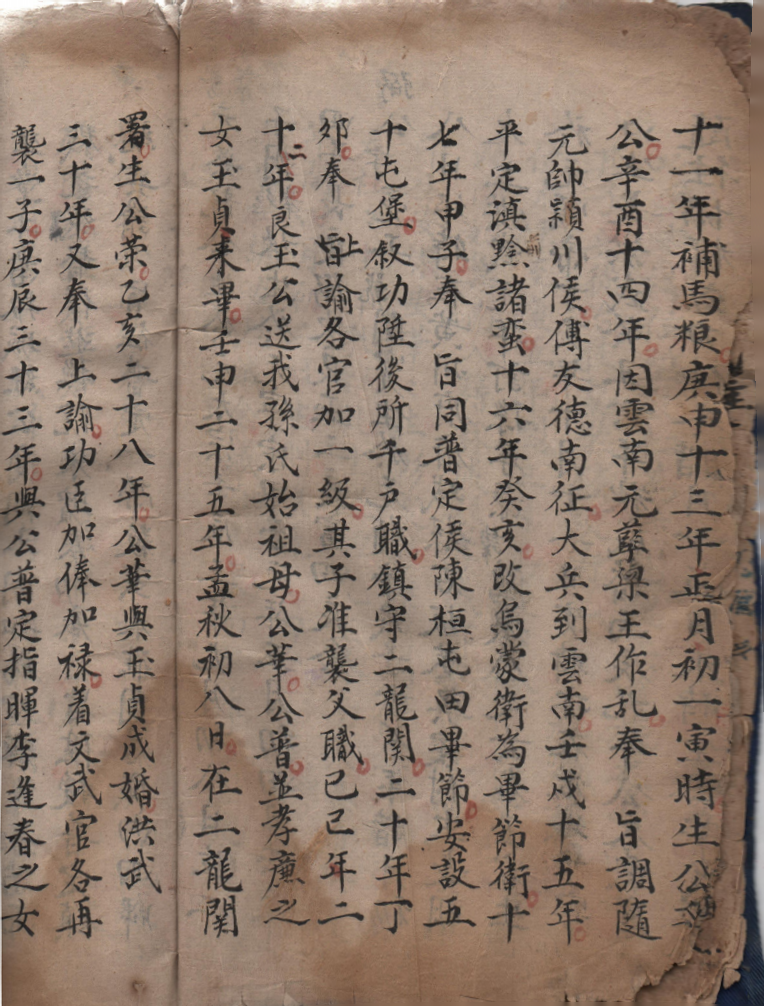 十一年補馬粮庚申十三年正月初一寅時生公
公辛酉十四年因雲南元孽梁王作乱奉 旨調隨
元帥潁川侯傅友德南征大兵到雲南壬戌十五年
平定滇黔諸蛮十六年癸亥改烏蒙衛為畢節衛十
七年甲子奉 旨同普定侯陳桓屯田畢節安設五
十屯堡叙功陞後所千户職鎮守二龍関二十年丁
夘奉 上旨諭各官加一級其子准襲父職己巳年二
十二年良玉公送我孫氏始祖母公華公普並孝廉之
女玉貞来畢壬申二十五年孟秋初八日在二龍関
署生公荣乙亥二十八年公華與玉貞成婚洪武
三十年又奉 上諭功臣加俸加禄着文武官各再
襲一子庚辰三十三年與公普定指暉李逢春之女